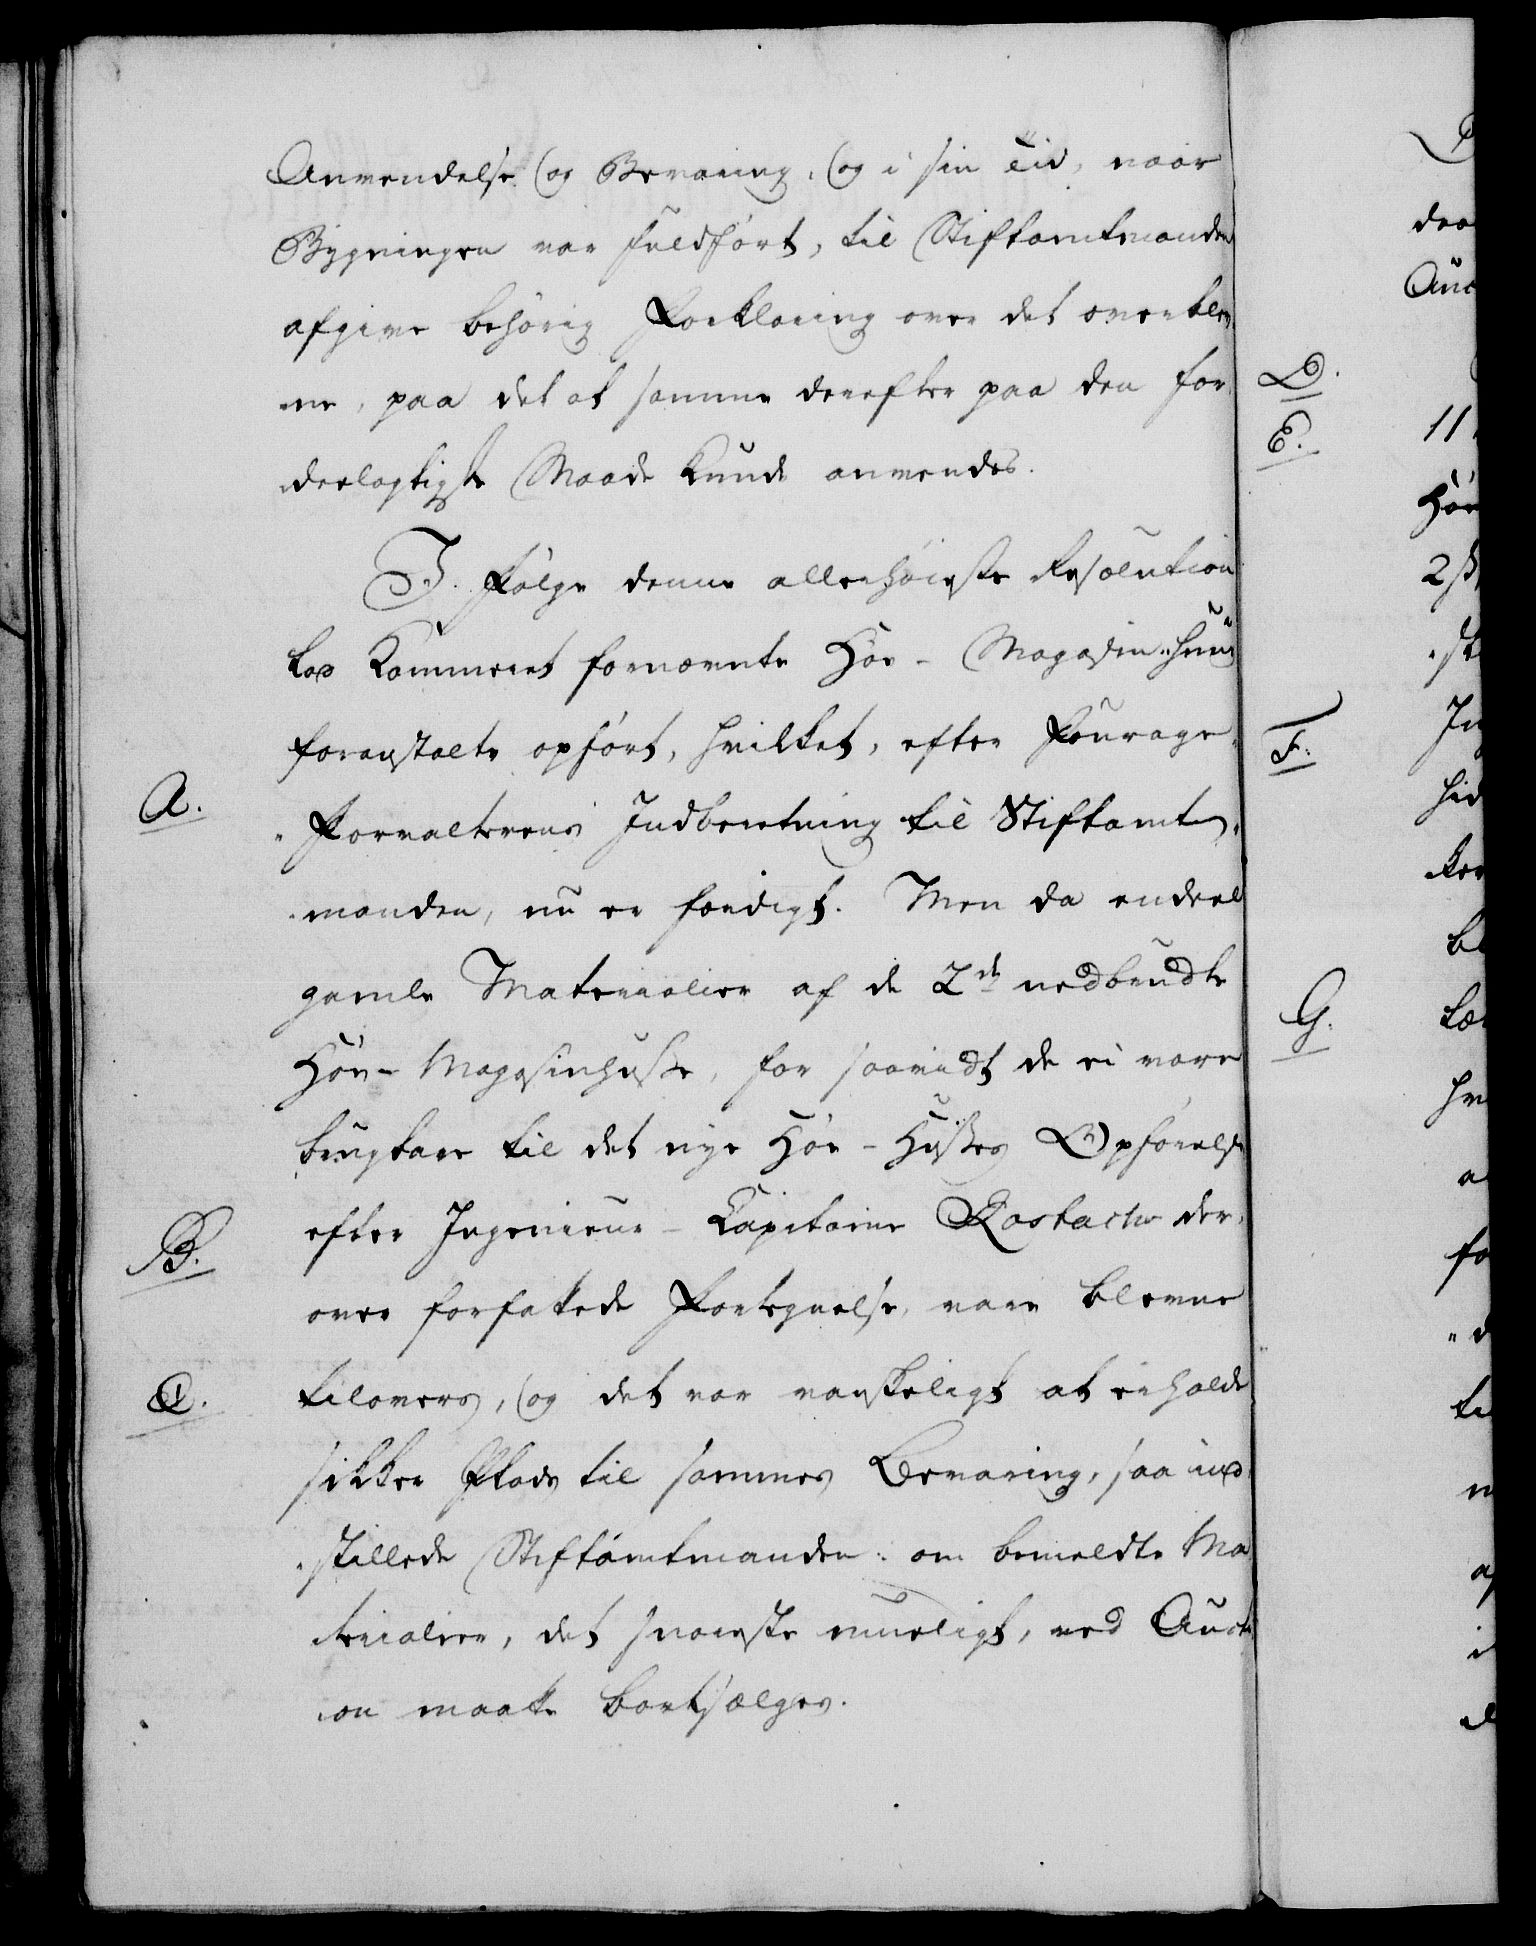 Anvendelse og Bevaring, og i sin Tid, naar
Bygningen var fuldført, til Stiftamtmanden
afgive behørig Forklaring over det overblev
ne, paa det at samme derefter paa den for
deelagtigste Maade kunde anvendes.
I Følge denne allerhøieste Resolution
lod Kammeret fornævnte Høe-Magasin-Huus
foranstalte opført, hvilket, efter Fourage-
A.
Forvalterens Indberetning til Stiftamt-
manden, nu er færdigt. Men da endeel
gamle Materialier af de 2de nedbrudte
Høe-Magasinhuse, for saavidt de ei vare
brugbare til det nye Høe-Huses Opførelse
efter Ingenieur-Kapitaine der-
B.
over forfattede Fortegnelse, vare blevne
C.
tilovers, og det var vanskeligt at erholde
sikker Plads til sammes Bevaring, saa ind-
stillede Stiftamtmanden: om bemeldte Ma
terialier, det snareste mueligt, ved Aucti
on maatte bortsælges.
D.
E.
F.
G.